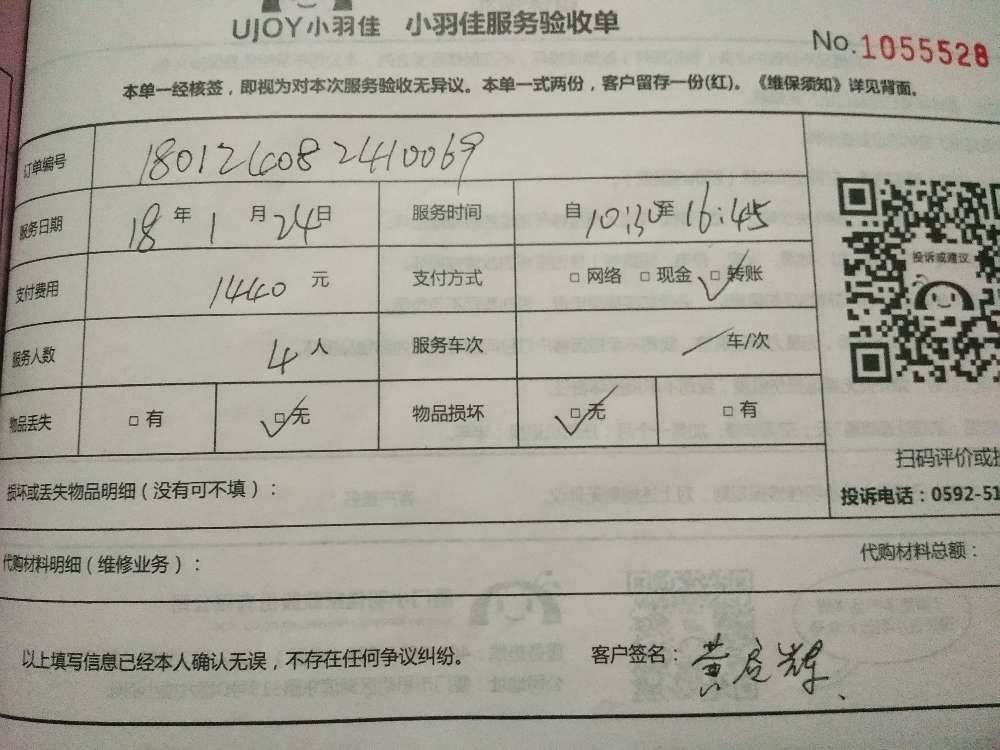 UJOY小羽佳 小羽佳服务验收单
No.1055528
本单一经核签，即视为对本次服务验收无异议。本单一式两份，客户留存一份(红)。《维保须知》详见背面。
订单编号 180124082410069
服务日期 18 年 1 月 24 日 服务时间 自 10:30 至 16:45
投诉或建议
支付费用 1440 元 支付方式 □ 网络 □ 现金 □ 转账
服务人数 4 人 服务车次 车/次
物品丢失 □ 有 □ 无 物品损坏 □ 无 □ 有
扫码评价或
损坏或丢失物品明细（没有可不填）：
投诉电话：0592-51
代购材料明细（维修业务）：
代购材料总额：
以上填写信息已经本人确认无误，不存在任何争议纠纷。 客户签名：黄启辉